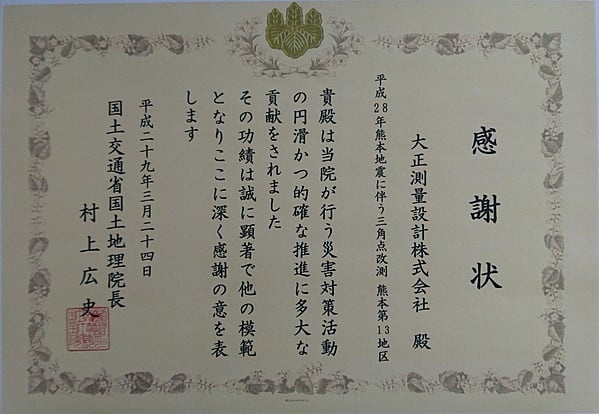 感謝状
大正測量設計株式会社 殿
平成28年熊本地震に伴う三角点改測 熊本第13地区
貴殿は当院が行う災害対策活動
の円滑かつ的確な推進に多大な
貢献をされました
その功績は誠に顕著で他の模範
となりここに深く感謝の意を表
します
平成二十九年三月二十四日
国土交通省国土地理院長
村上広史